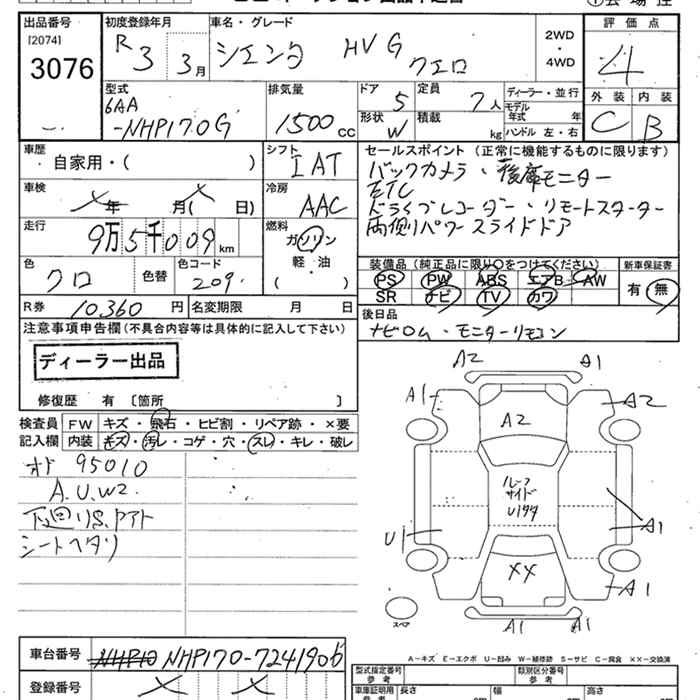 出品番号 初度登録年月 車名・グレード 評価点
[2074]
3076
R3 3月
シエンタ HV G
クエロ
2WD
・
4WD
4
型式 排気量 ドア 定員 ディーラー・並行 外装 内装
6AA
-NHP170G
1500 cc
5
7人
モデル年式 年
形状 W 積載 kg ハンドル 左・右
C B
車歴 自家用・( )
シフト IAT
セールスポイント (正常に機能するものに限ります)
バックカメラ・後席モニター
ETC
ドライブレコーダー・リモートスターター
両側パワースライドドア
車検 年 月( 日)
冷房 AAC
走行 9万5千009km
燃料 ガソリン
軽・油
( )
色 クロ 色替 色コード 209
装備品 (純正品に限り○をつけてください) 新車保証書
PS PW ABS エアB AW
SR ナビ TV カワ
有・無
R券 10,360円 名変期限 月 日
後日品
ナビロム・モニターリモコン
注意事項申告欄 (不具合内容等は具体的に記入して下さい)
ディーラー出品
修復歴 有 [箇所 ]
検査員 FW キズ・飛石・ヒビ割・リペア跡・×要
記入欄 内装 キズ・汚レ・コゲ・穴・スレ・キレ・破レ
オド 95010
A.U.W2
下回りS.アト
シートヘタリ
A2 A1
A1 A2
A2
ルーフ
サイド
U1タタ
U1 A1
XX A1
スペア
A1 A1
A-キズ E-エクボ U-凹み W-補修跡 S-サビ C-腐食 ××-交換済
車台番号 NHP10 NHP170-7241906
登録番号
型式指定番号 参考 類別区分番号 参考
車庫証明用 参考 長さ cm 幅 cm 高さ cm